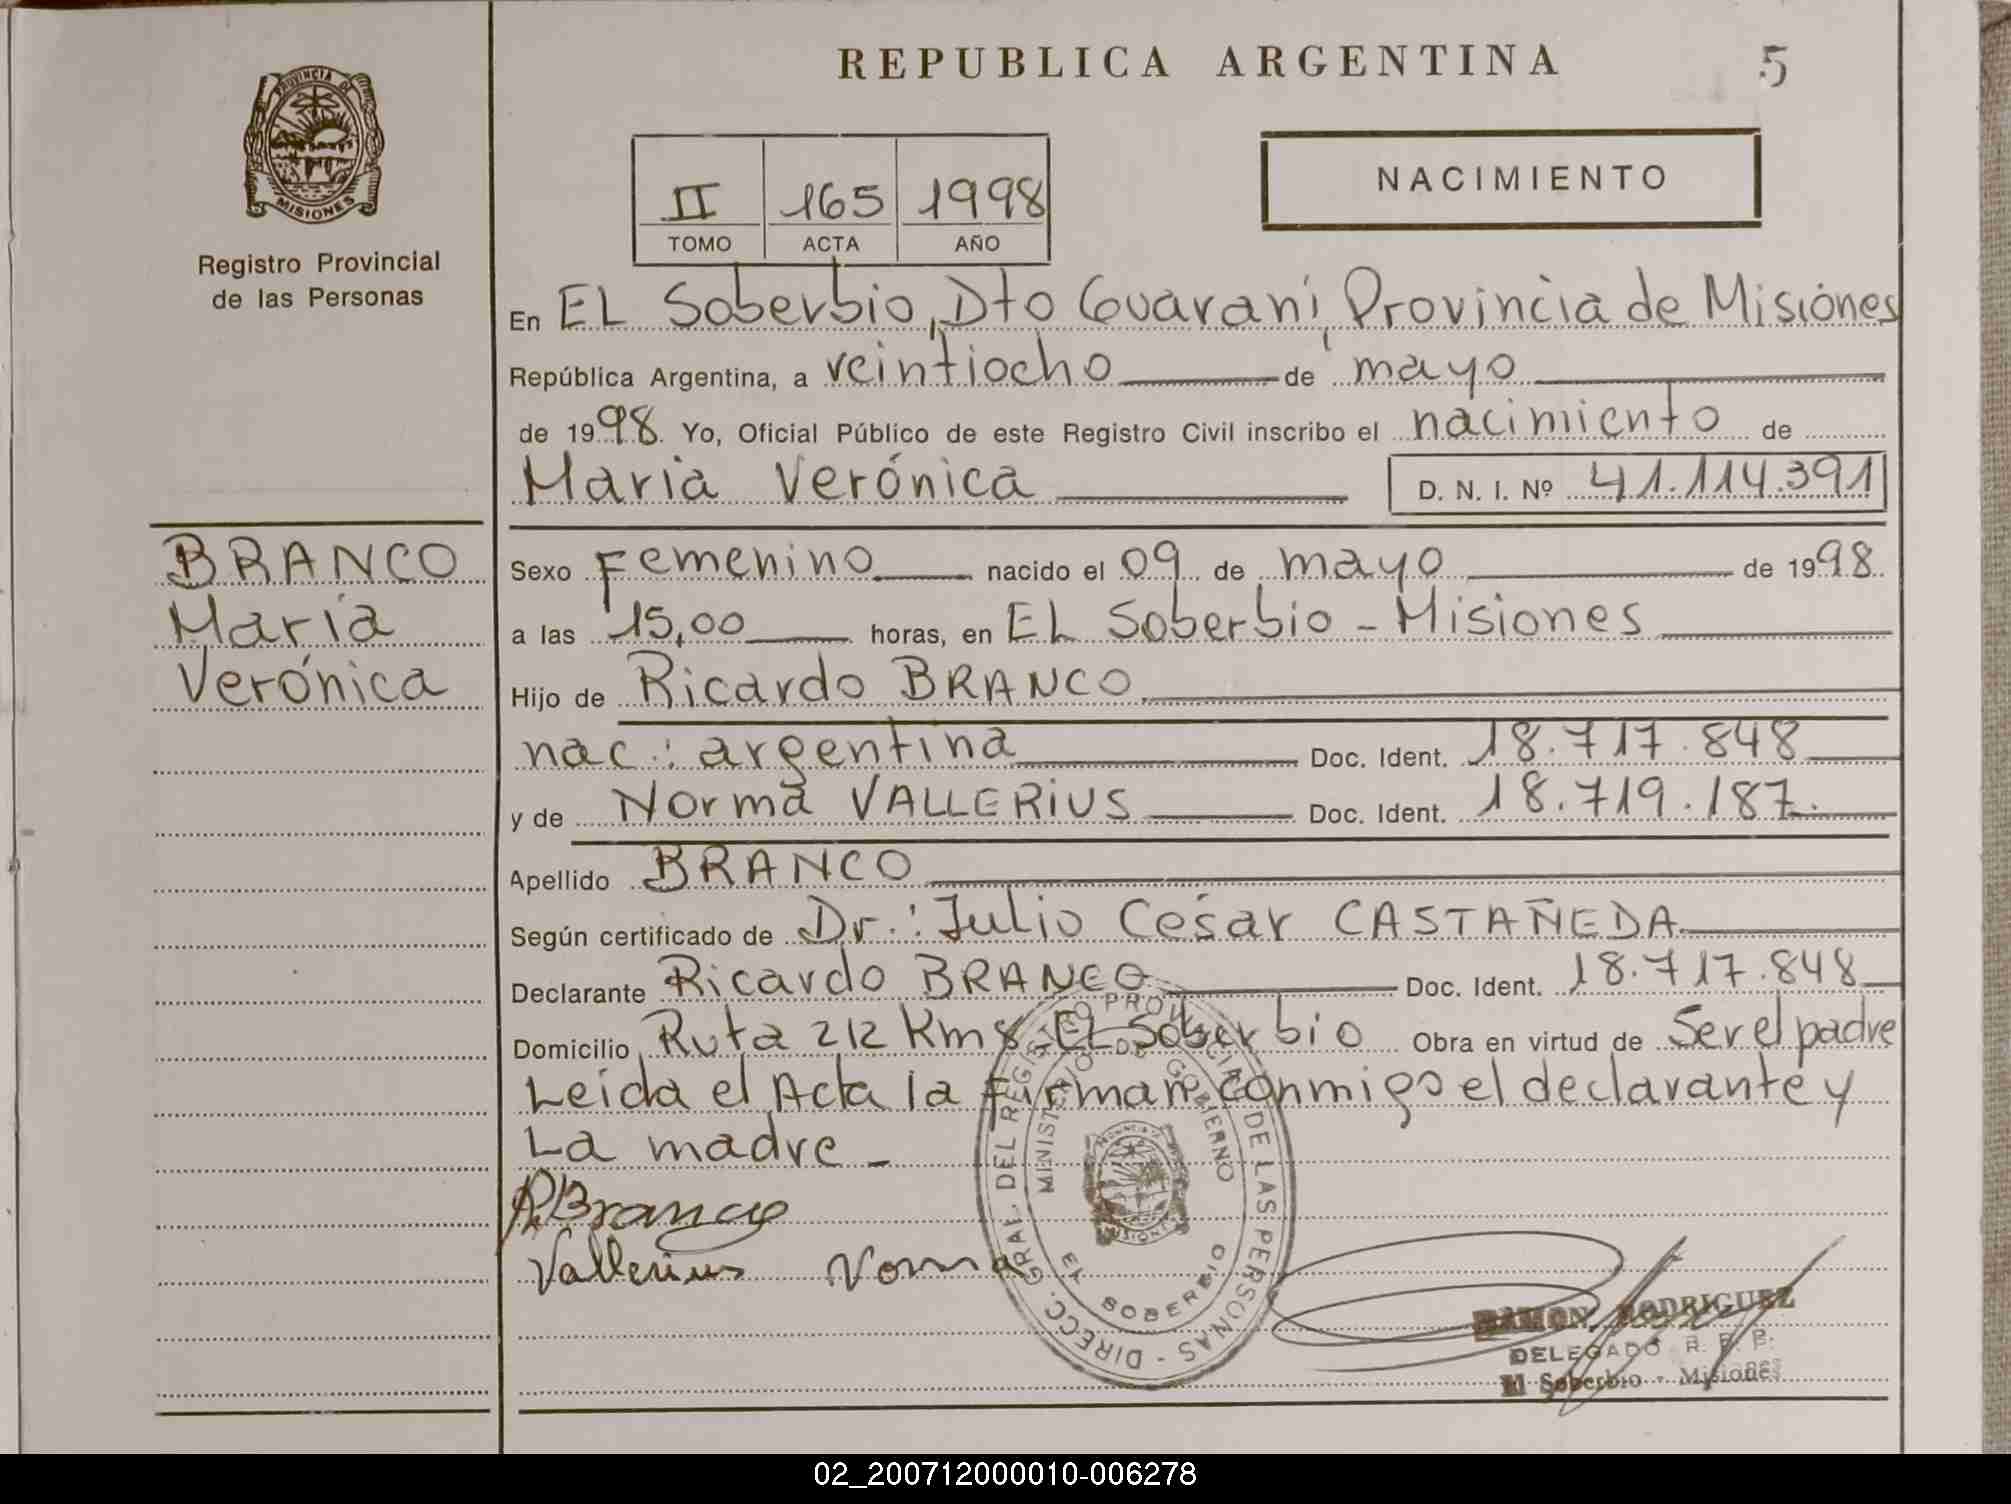 REPUBLICA ARGENTINA
5
PROVINCIA DE
MISIONES
Registro Provincial
de las Personas
NACIMIENTO
II 165 1998
TOMO ACTA AÑO
En EL Soberbio, Dto Guaraní, Provincia de Misiones
República Argentina, a veintiocho de mayo
de 1998. Yo, Oficial Público de este Registro Civil inscribo el nacimiento de
Maria Verónica D. N. I. Nº 41.114.391
BRANCO
Maria
Verónica
Sexo Femenino nacido el 09 de mayo de 1998
a las 15,00 horas, en EL Soberbio - Misiones
Hijo de Ricardo BRANCO
nac.: argentina Doc. Ident. 18.717.848
y de Norma VALLERIUS Doc. Ident. 18.719.187.
Apellido BRANCO
Según certificado de Dr.: Julio César CASTAÑEDA
Declarante Ricardo BRANCO Doc. Ident. 18.717.848
Domicilio Ruta 212 Km 8 EL Soberbio Obra en virtud de Ser el padre
Leida el Acta la Firman conmigo el declarante y
La madre -
R. Branco
Vallerius Norma
DIRECC. GRAL. DEL REGISTRO PROVINCIAL DE LAS PERSONAS -
MINISTERIO DE GOBIERNO
EL SOBERBIO
RAMON RODRIGUEZ
DELEGADO R. P. P.
El Soberbio - Misiones
02_200712000010-006278